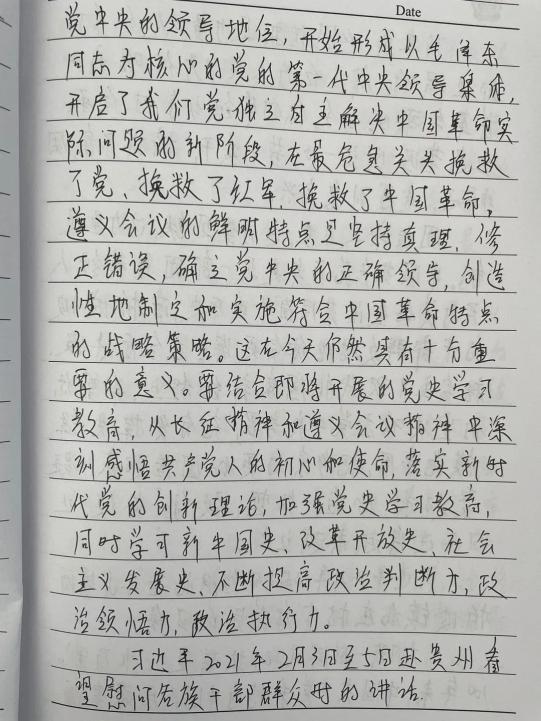 Date
党中央的领导地位，开始形成以毛泽东
同志为核心的党的第一代中央领导集体，
开启了我们党独立自主解决中国革命实
际问题的新阶段，在最危急关头挽救
了党、挽救了红军、挽救了中国革命，
遵义会议的鲜明特点是坚持真理、修
正错误，确立党中央的正确领导，创造
性地制定和实施符合中国革命特点
的战略策略。这在今天仍然具有十分重
要的意义。要结合即将开展的党史学习
教育，从长征精神和遵义会议精神中深
刻感悟共产党人的初心和使命，落实新时
代党的创新理论，加强党史学习教育，
同时学习新中国史、改革开放史、社会
主义发展史、不断提高政治判断力，政
治领悟力，政治执行力。
习近平2021年2月3日至5日赴贵州看
望慰问各族干部群众时的讲话.